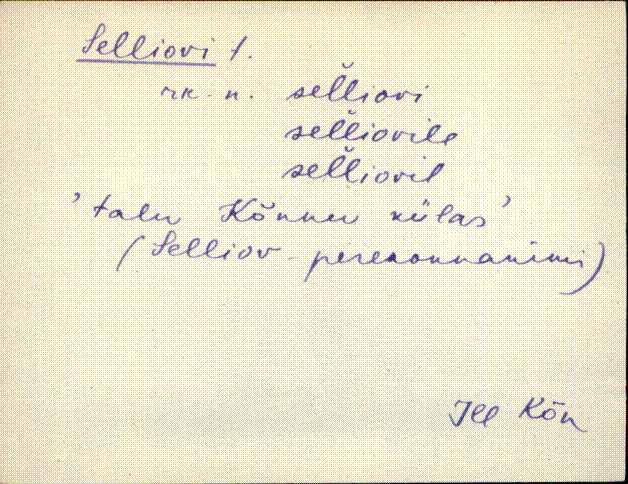 Selliovi t.
rk. n. sel̆liovi
sel̆liovile
sel̆liovil
'talu Kõnnu külas'
(Selliov - perekonnanimi)
Jll Kõn